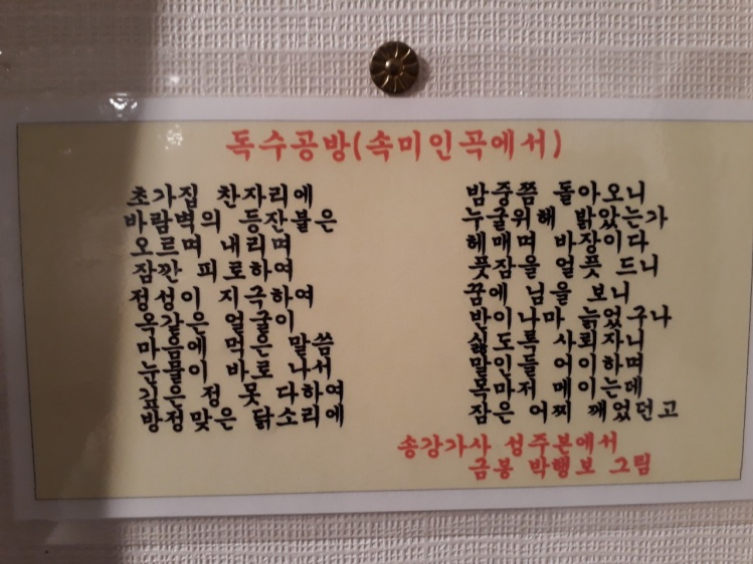 독수공방(속미인곡에서)
초가집 찬자리에 밤중쯤 돌아오니
바람벽의 등잔불은 누굴위해 밝았는가
오르며 내리며 헤매며 바장이다
잠깐 피로하여 풋잠을 얼풋 드니
정성이 지극하여 꿈에 님을 보니
옥같은 얼굴이 반이나마 늙었구나
마음에 먹은 말씀 싫도록 사뢰자니
눈물이 바로 나서 말인들 어이하며
깊은 정 못 다하여 목마저 메이는데
방정맞은 닭소리에 잠은 어찌 깨었던고
송강가사 성주본에서
금봉 박행보 그림